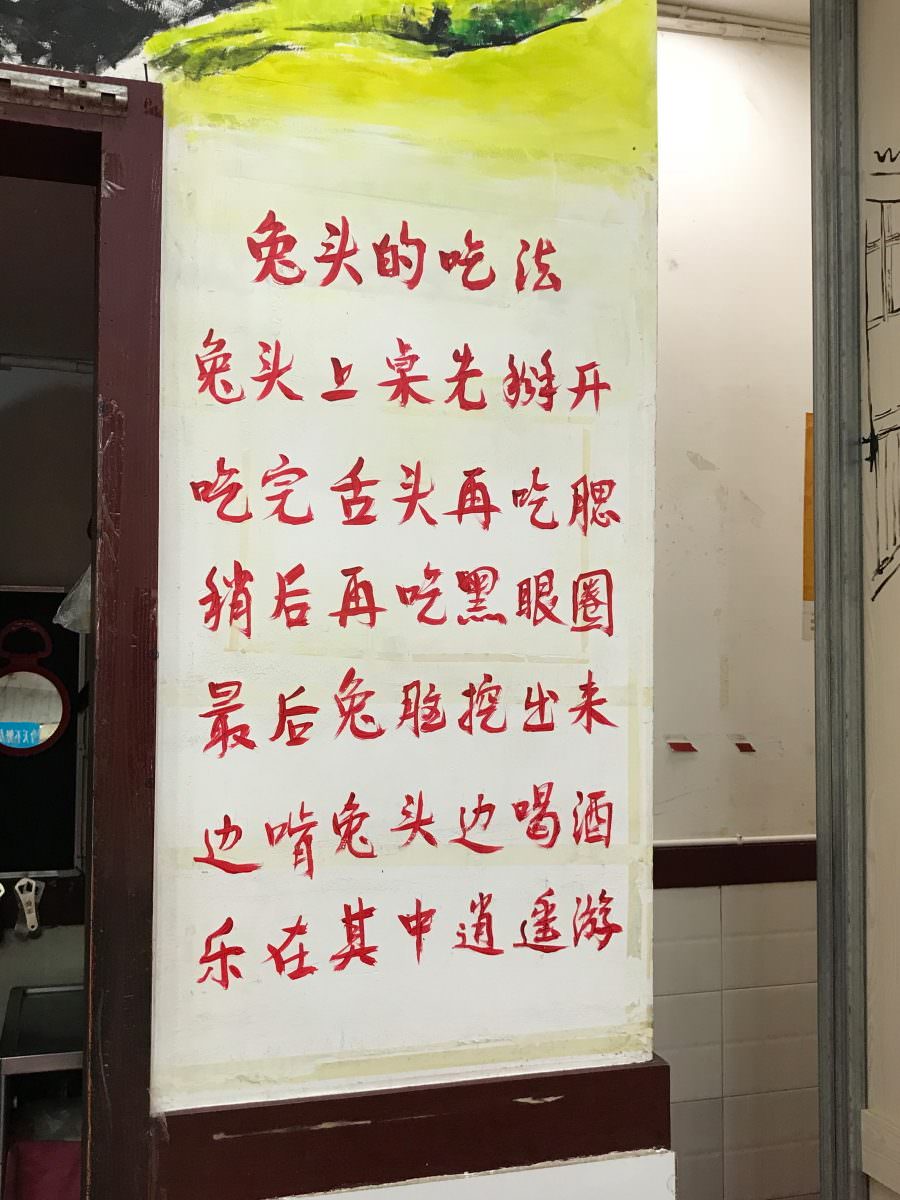 兔头的吃法
兔头上桌先掰开
吃完舌头再吃腮
稍后再吃黑眼圈
最后兔脑挖出来
边啃兔头边喝酒
乐在其中逍遥游